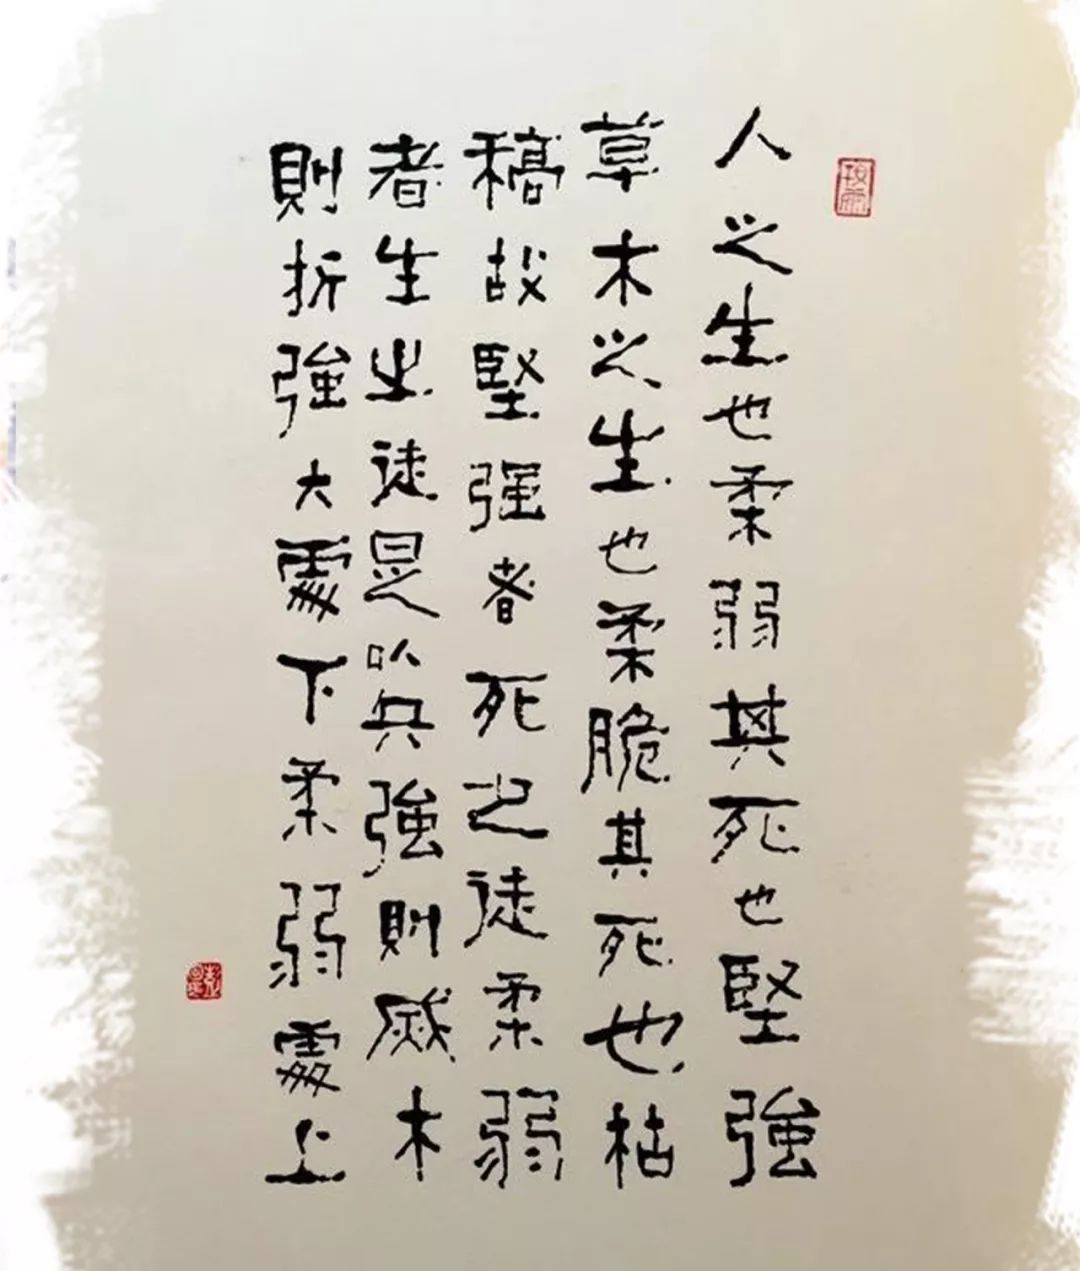 人之生也柔弱其死也堅強
草木之生也柔脆其死也枯
稿故堅强者死之徒柔弱
者生之徒是以兵強則烕木
則折強大處下柔弱處上